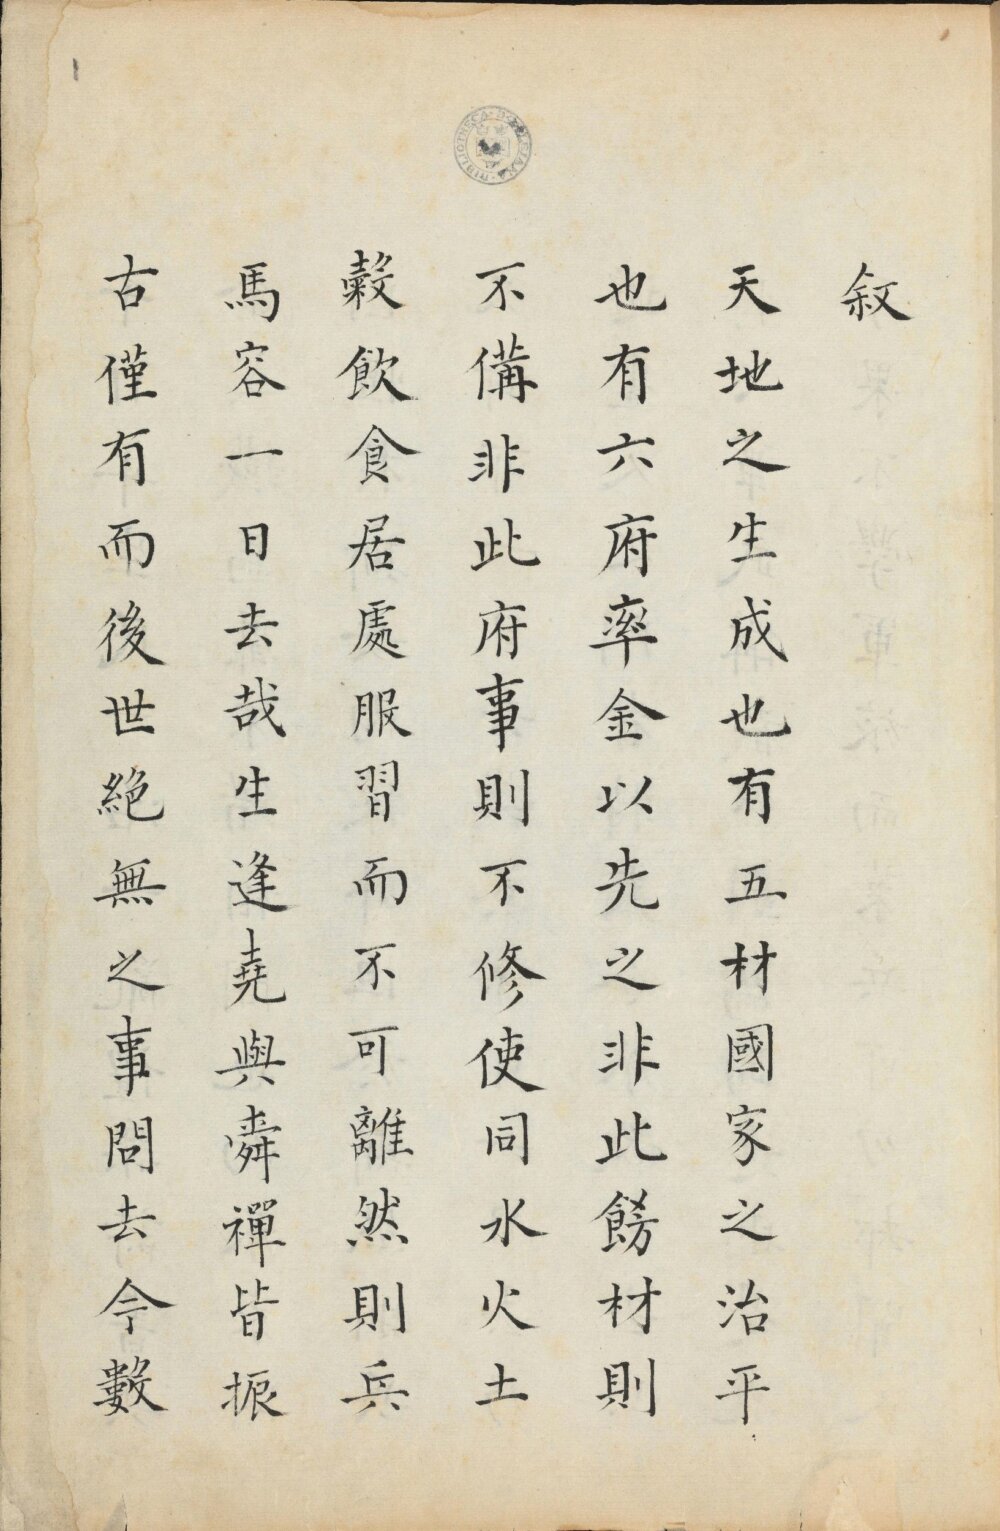 叙
天地之生成也有五材國家之治平
也有六府率金以先之非此餝材則
不備非此府事則不修使同水火土
穀飲食居處服習而不可離然則兵
馬容一日去哉生逢堯與舜禪皆振
古僅有而後世絕無之事問去今數